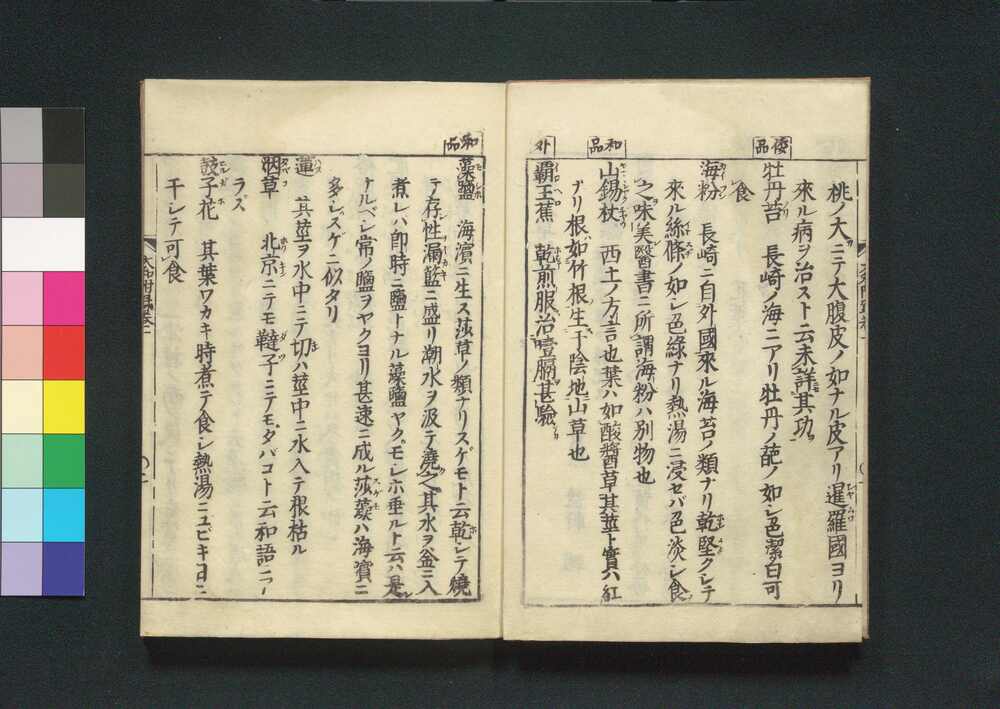 桃ノ大ニテ大腹皮ノ如ナル皮アリ暹羅國ヨリ
來ル病ヲ治スト云未詳其功
倭品
牡丹苔 長崎ノ海ニアリ牡丹ノ葩ノ如シ色潔白可
食
海粉 長崎ニ自外國來ル海苔ノ類ナリ乾堅クシテ
來ル絲條ノ如シ色綠ナリ熱湯ニ浸セバ色淡シ食
之味美醫書ニ所謂海粉ハ別物也
和品
山錫杖 西土ノ方言也葉ハ如酸醬草其莖ト實ハ紅
ナリ根如竹根生于陰地山草也
外
覇王蕉 乾煎服治噎膈甚驗
和品
藻鹽 海濱ニ生ス莎草ノ類ナリスゲモト云乾シテ燒
テ存性漏籃ニ盛リ潮水ヲ汲テ澆之其水ヲ釜ニ入
煮レハ卽時ニ鹽トナル藻鹽ヤクモシホ垂ルト云ハ是
ナルベシ常ノ鹽ヲヤクヨリ甚速ニ成ル莎藻ハ海濱ニ
多シスゲニ似タリ
蓮 其莖ヲ水中ニテ切ハ莖中ニ水入テ根枯ル
烟草 北京ニテモ韃子ニテモタバコト云和語ニア
ラズ
鼓子花 其葉ワカキ時煮テ食シ熱湯ニユビキ日ニ
干シテ可食